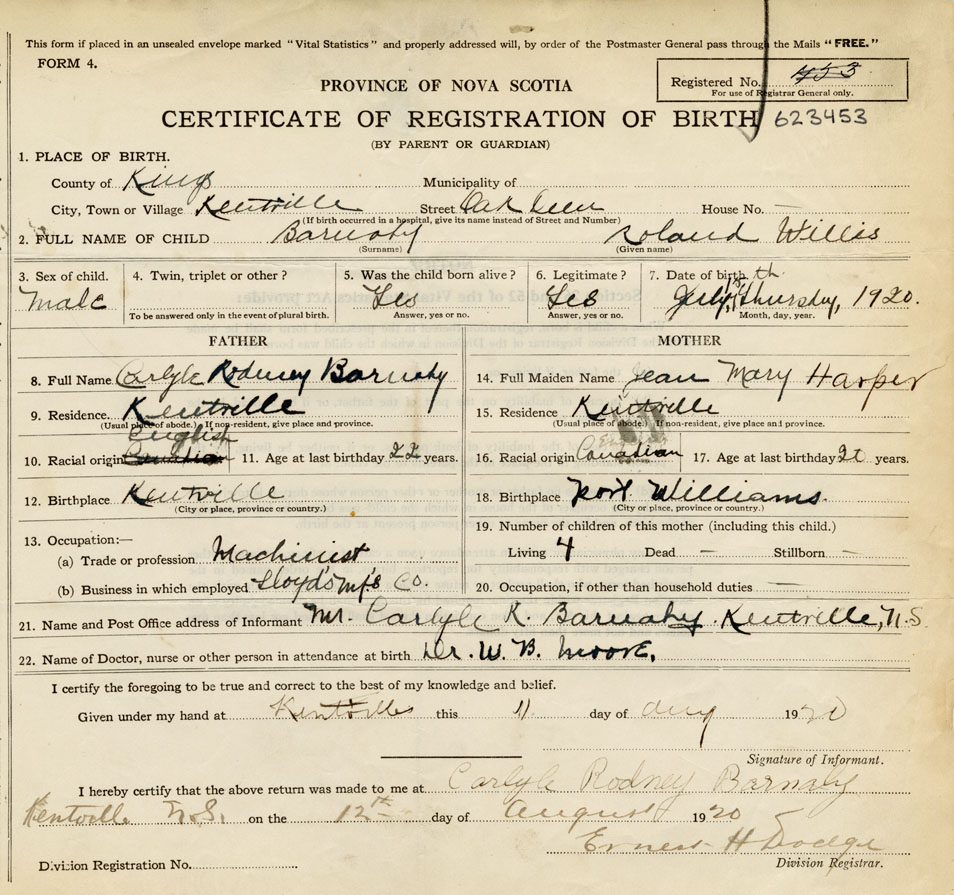 This form if placed in an unsealed envelope marked "Vital Statistics" and properly addressed will, by order of the Postmaster General pass through the Mails "FREE."
FORM 4.
Registered No. 453
For use of Registrar General only.
PROVINCE OF NOVA SCOTIA
CERTIFICATE OF REGISTRATION OF BIRTH 623453
(BY PARENT OR GUARDIAN)
1. PLACE OF BIRTH.
County of Kings Municipality of
City, Town or Village Kentville Street Oak Deen House No. —
(If birth occurred in a hospital, give its name instead of Street and Number)
2. FULL NAME OF CHILD Barnaby Roland Willis
(Surname) (Given name)
3. Sex of child. 4. Twin, triplet or other? 5. Was the child born alive? 6. Legitimate? 7. Date of birth
Male Yes Yes July, th Thursday, 1920.
To be answered only in the event of plural birth. Answer, yes or no. Answer, yes or no. Month, day, year.
FATHER MOTHER
8. Full Name Carlyle Rodney Barnaby 14. Full Maiden Name Jean Mary Harper
9. Residence Kentville 15. Residence Kentville
(Usual place of abode.) If non-resident, give place and province. (Usual place of abode.) If non-resident, give place and province.
English
10. Racial origin Canadian 11. Age at last birthday 22 years. 16. Racial origin Canadian 17. Age at last birthday years.
12. Birthplace Kentville 18. Birthplace Port Williams.
(City or place, province or country.) (City or place, province or country.)
19. Number of children of this mother (including this child.)
13. Occupation:—
(a) Trade or profession Machinist Living 4 Dead — Stillborn —
(b) Business in which employed Lloyd's Mf'g Co. 20. Occupation, if other than household duties —
21. Name and Post Office address of Informant Mr. Carlyle R. Barnaby. Kentville, N.S.
22. Name of Doctor, nurse or other person in attendance at birth Dr. W. B. Moore.
I certify the foregoing to be true and correct to the best of my knowledge and belief.
Given under my hand at Kentville this 11 day of Aug 1920
Signature of Informant.
I hereby certify that the above return was made to me at Carlyle Rodney Barnaby
Kentville N.S. on the 12th day of August 1920
Ernest H Dodge
Division Registration No. Division Registrar.